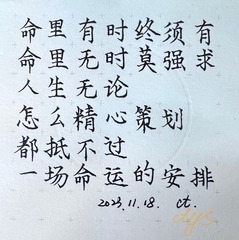 命里有时终须有
命里无时莫强求
人生无论
怎么精心策划
都抵不过
一场命运的安排
2023.11.18. ct.